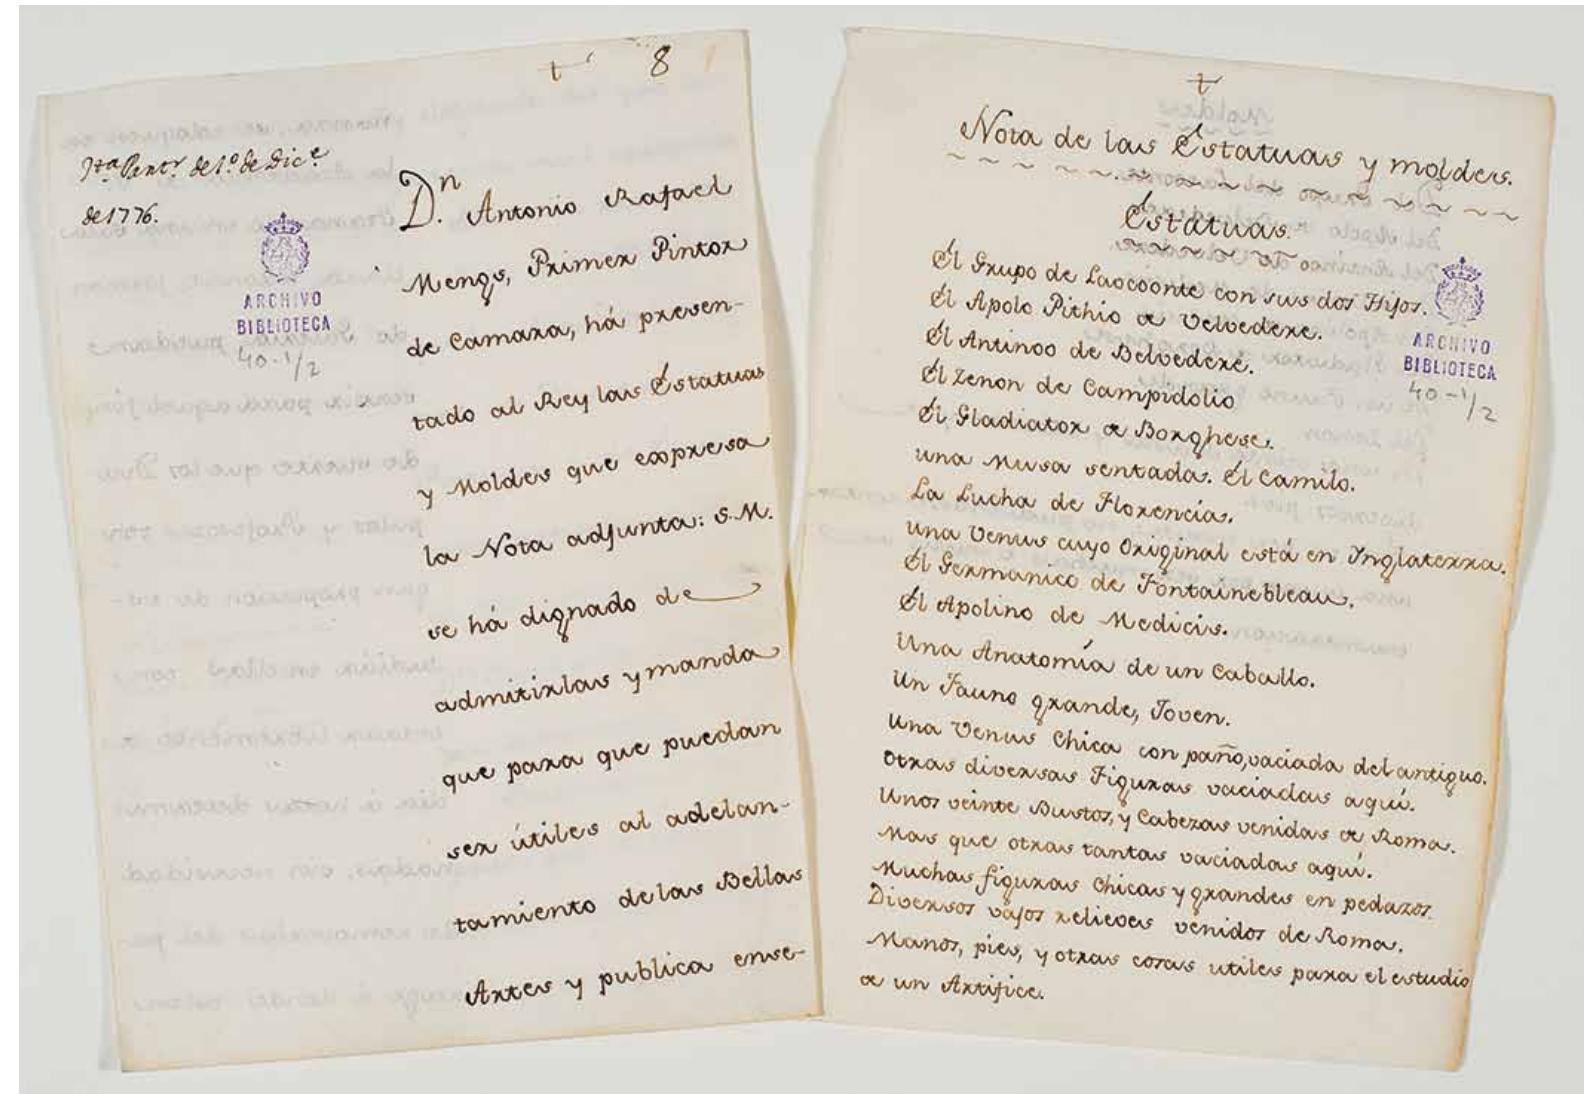 t 8
Jta Parte. de 1º de Dice.
de 1776.
ARCHIVO
BIBLIOTECA
40-1/2
Dn. Antonio Rafael
Mengs, Primer Pintor
de Camara, há presen-
tado al Rey las Estatuas
y Moldes que expresa
la Nota adjunta: S.M.
se há dignado de
admitirlas y manda
que para que puedan
ser útiles al adelan-
tamiento de las Bellas
Artes y publica ense-
t
Nota de las Estatuas y moldes.
Estatuas.
El Grupo de Laocoonte con sus dos Hijos.
El Apolo Pithio de Velvedere.
El Antinoo de Belvedere.
El Zenon de Campidolio
El Gladiator de Borghese.
una Musa sentada. El Camilo.
La Lucha de Florencia.
una Venus cuyo Original está en Inglaterra.
El Germanico de Fontainebleau.
El Apolino de Medicis.
Una Anatomía de un Caballo.
Un Fauno grande, Joven.
Una Venus Chica con paño, vaciada del antiguo.
Otras diversas Figuras vaciadas aquí.
Unos veinte Bustos, y Cabezas venidas de Roma.
Mas que otras tantas vaciadas aquí.
Muchas figuras Chicas y grandes en pedazos.
Diversos vajos relieves venidos de Roma.
Manos, pies, y otras cosas utiles para el estudio
de un Artifice.
ARCHIVO
BIBLIOTECA
40-1/2